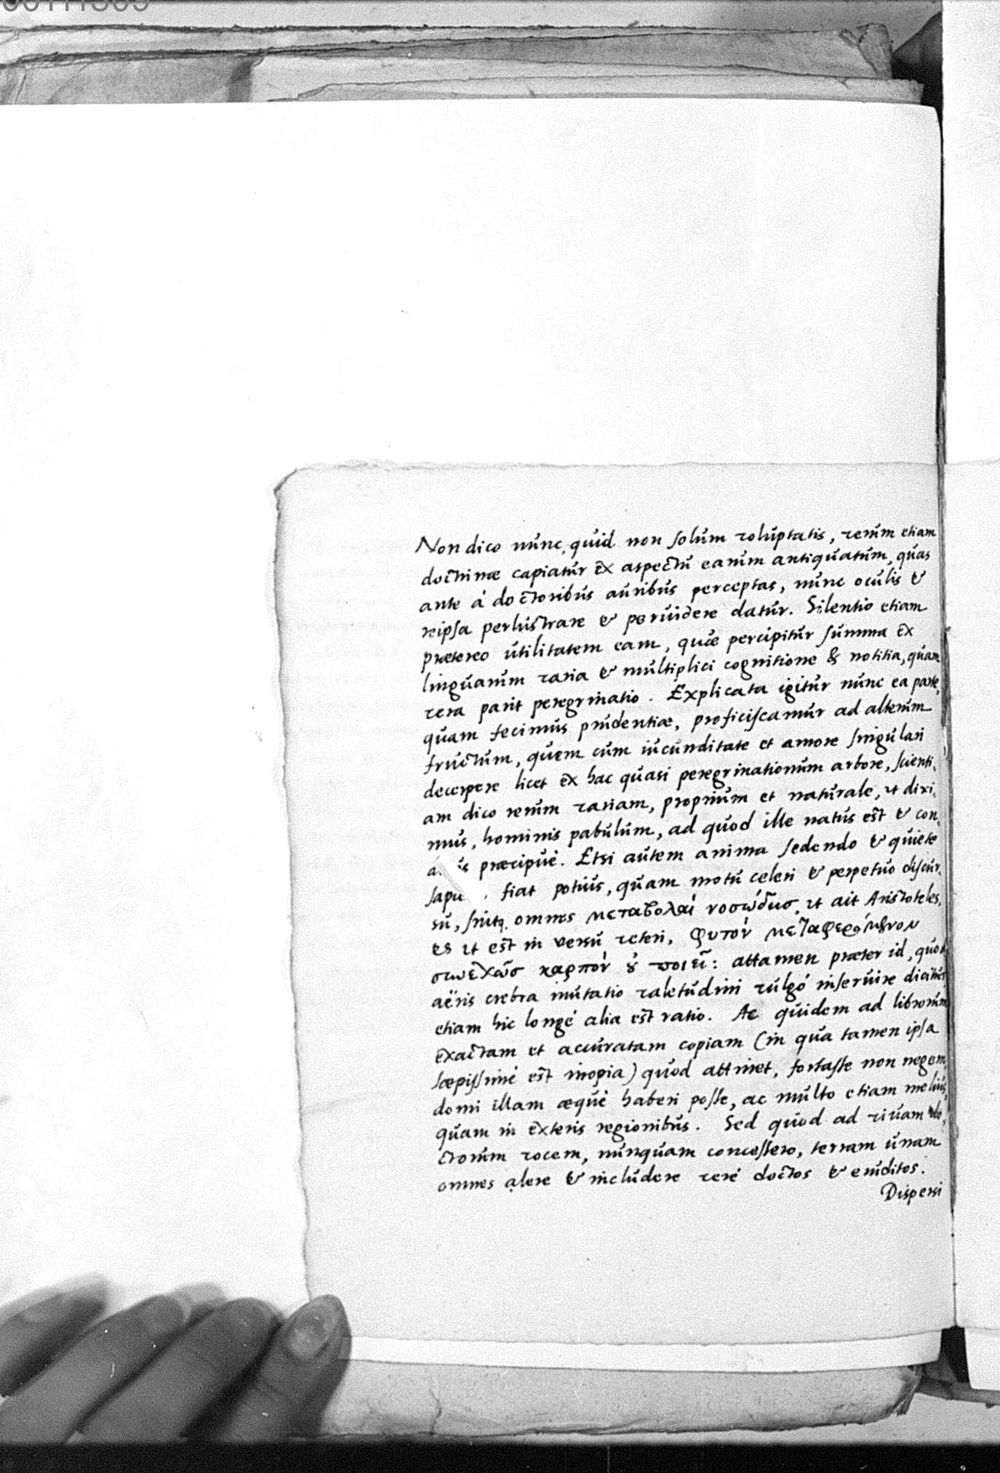 Non dico nunc, quid non solùm voluptatis, rerùm etiam
doctrinæ capiatùr ex aspectù earùm antiquatùm, quas
ante à doctoribùs aùribùs perceptas, nùnc ocùlis &
reipsa perlùstrare & pervidere datùr. Silentio etiam
prætereo ùtilitatem eam, quæ percipitùr sùmma ex
lingùarùm varia & mùltiplici cognitione & notitia, quam
vera parit peregrinatio. Explicata igitùr nùnc ea parte,
quam fecimùs prùdentiæ, proficiscamùr ad alterùm
frùctùm, quem cùm iùcùnditate et amore singùlari
decerpere licet ex hac quasi peregrinationùm arbore, scienti,
am dico rerùm variam, propriùm et natùrale, ùt dixi,
mùs, hominis pabùlùm, ad quod ille natùs est & con,
præcipùè. Etsi aùtem anima sedendo & quiete
fiat potiùs, quam motù celeri & perpetùo discùr,
sù, sintq. omnes μεταβολαί νοσώδεισ, ùt ait Aristoteles,
es ùt est in versù veteri, φυτον μεταφερόμενον
συνεχῶσ καρπὸν ȣ ποιεῖ: attamen præter id, quod
aëris crebra mùtatio valetùdini vùlgò inservire dicitùr
etiam hic longè alia est ratio. Ac quidem ad librorùm
exactam et accùratam copiam (in qua tamen ipsa
sæpissimè est inopia) quod attinet, fortasse non negem
domi illam æquè haberi posse, ac mùlto etiam meliùs,
quam in exteris regionibùs. Sed quod ad vivam do,
ctorùm vocem, nùnquam concessero, terram ùnam
omnes alere & inclùdere verè doctos & erùditos.
Dispersi